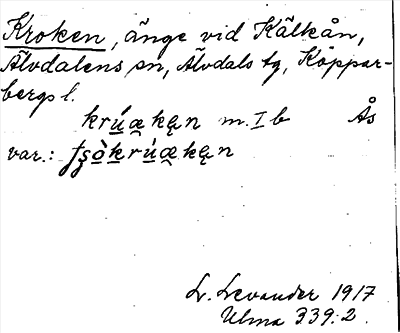 Kroken, änge vid Kälkån,
Älvdalens sn, Älvdals tg, Koppar-
bergs l.
krúækęn m. I b Ås
var.: 
L. Levander 1917
Ulma 339:2.